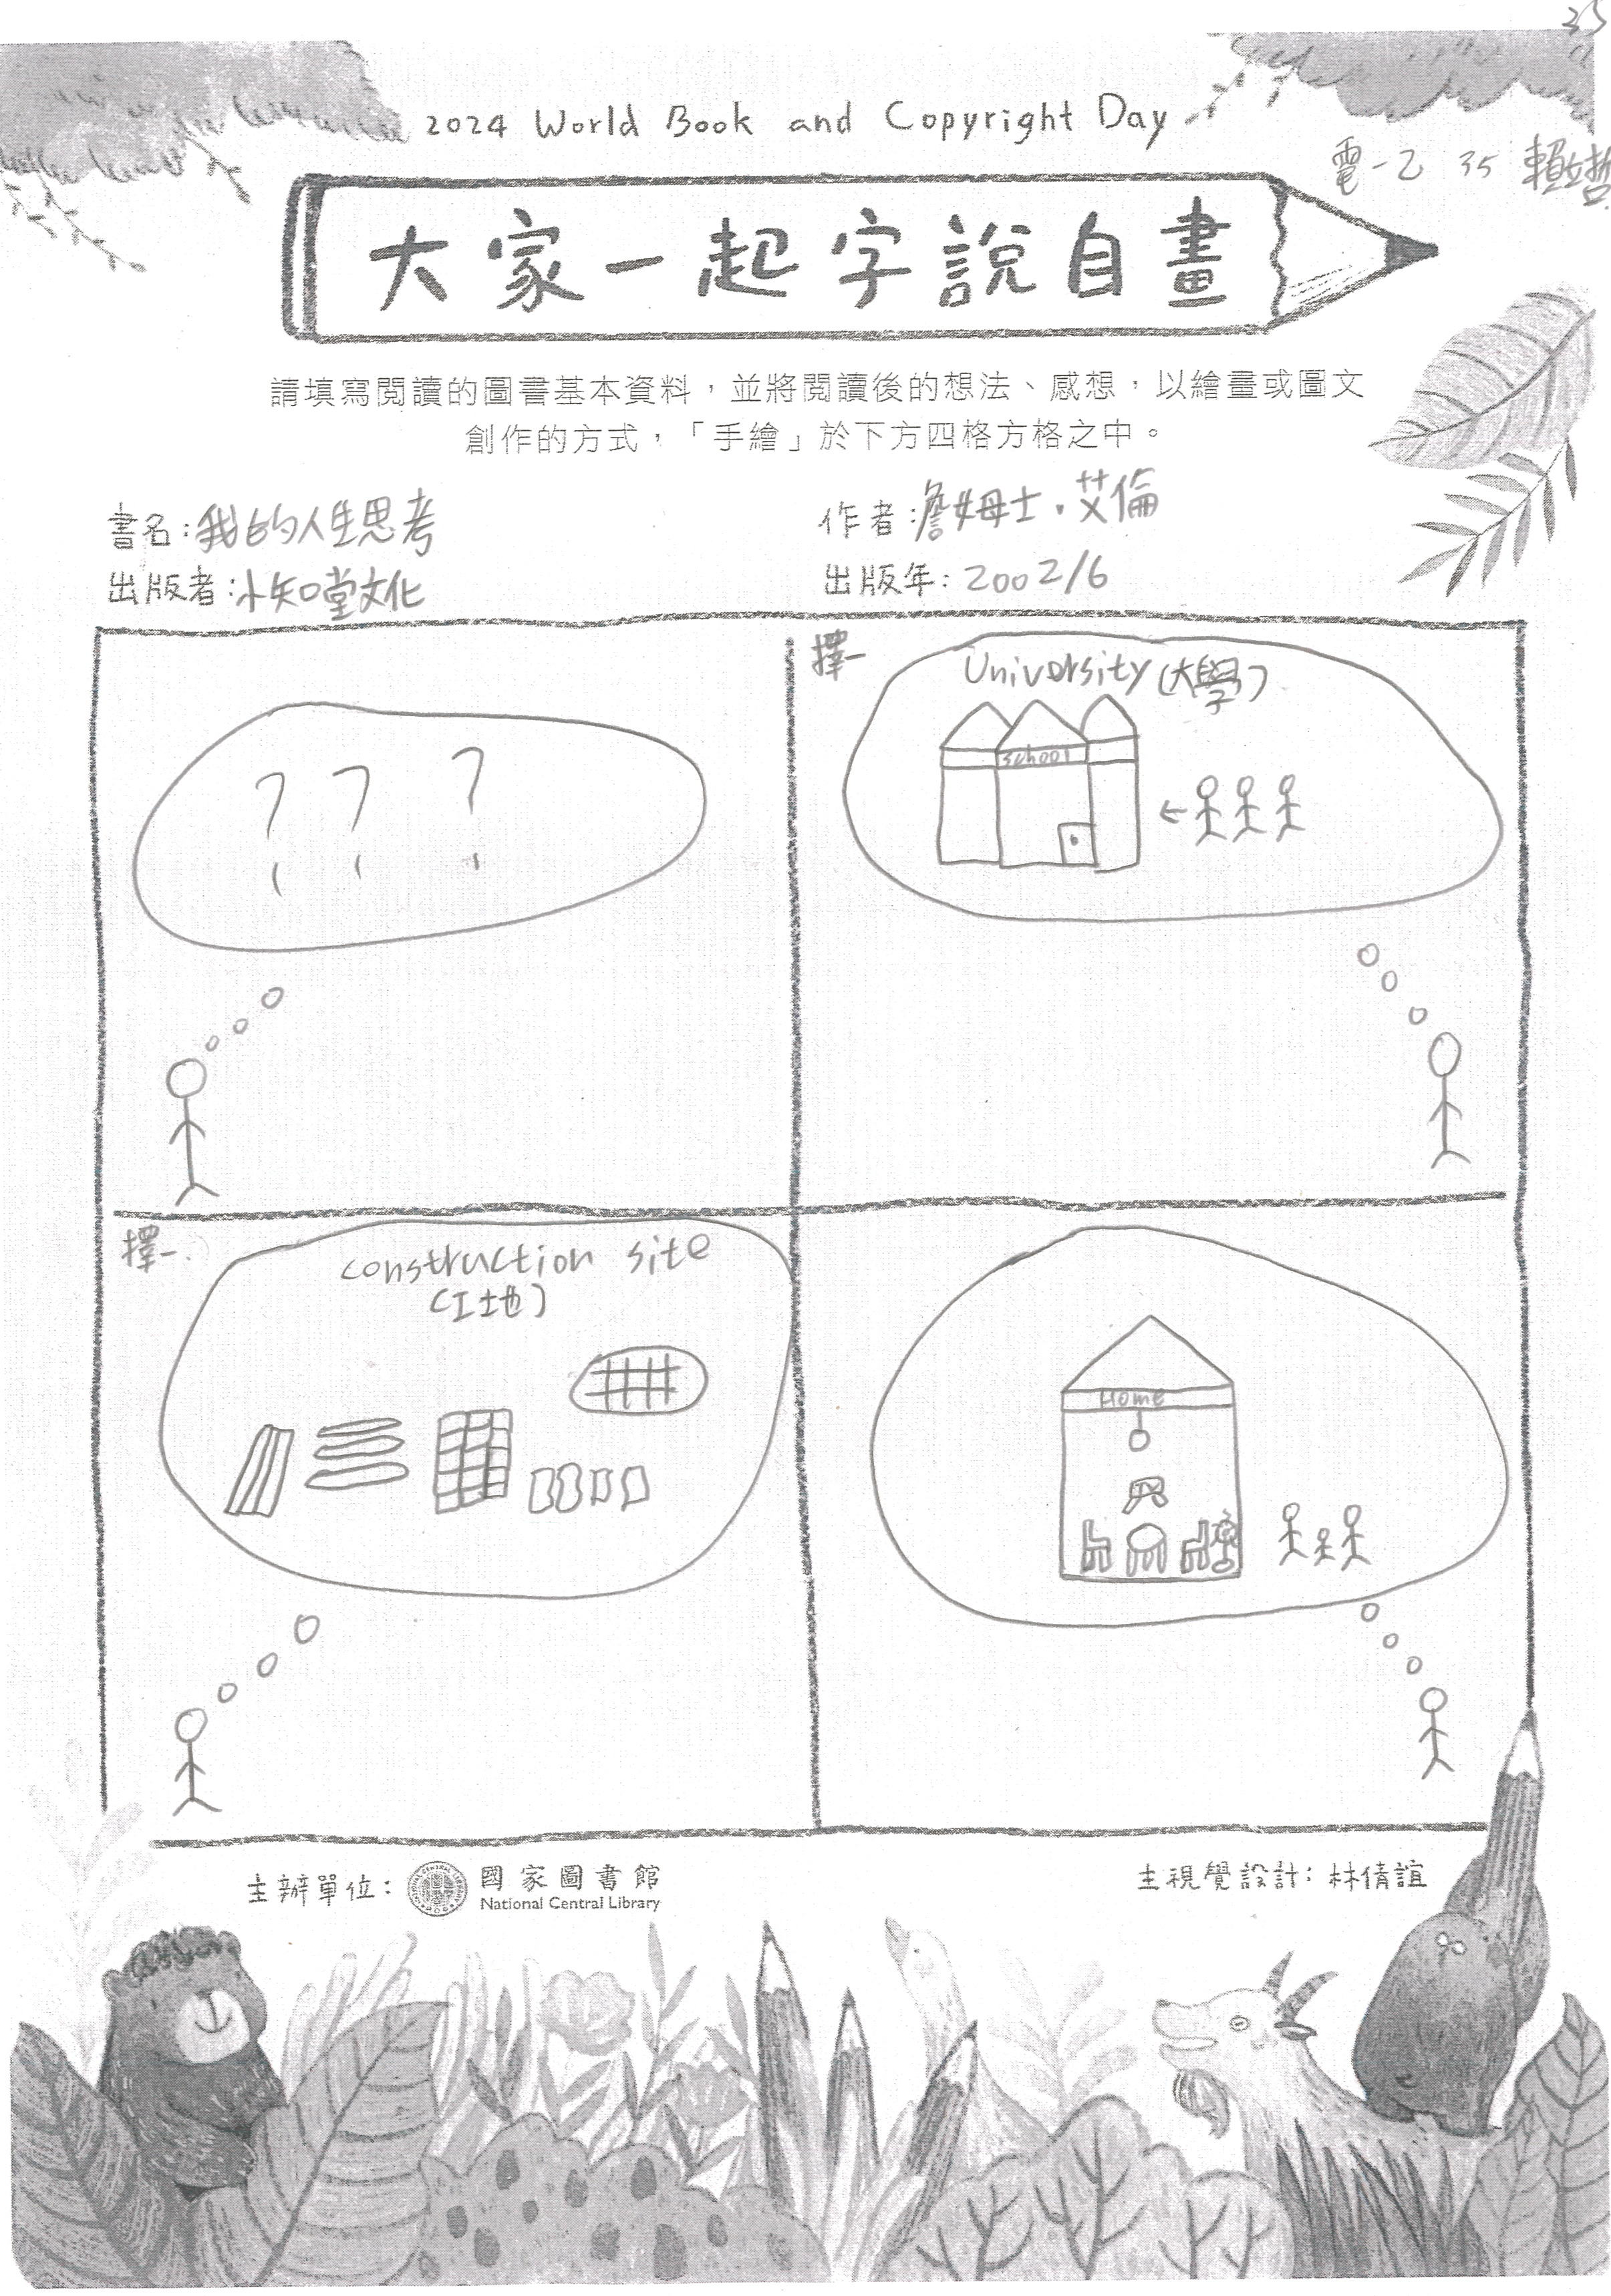 35
2024 World Book and Copyright Day
電一乙 35 賴竑哲
大家一起字說自畫
請填寫閱讀的圖書基本資料，並將閱讀後的想法、感想，以繪畫或圖文
創作的方式，「手繪」於下方四格方格之中。
書名：我的人生思考
作者：詹姆士．艾倫
出版者：小知堂文化
出版年：2002/6
? ? ?
擇一
University (大學)
school
擇一.
construction site
(工地)
Home
主辦單位：國家圖書館
National Central Library
主視覺設計：林倩誼